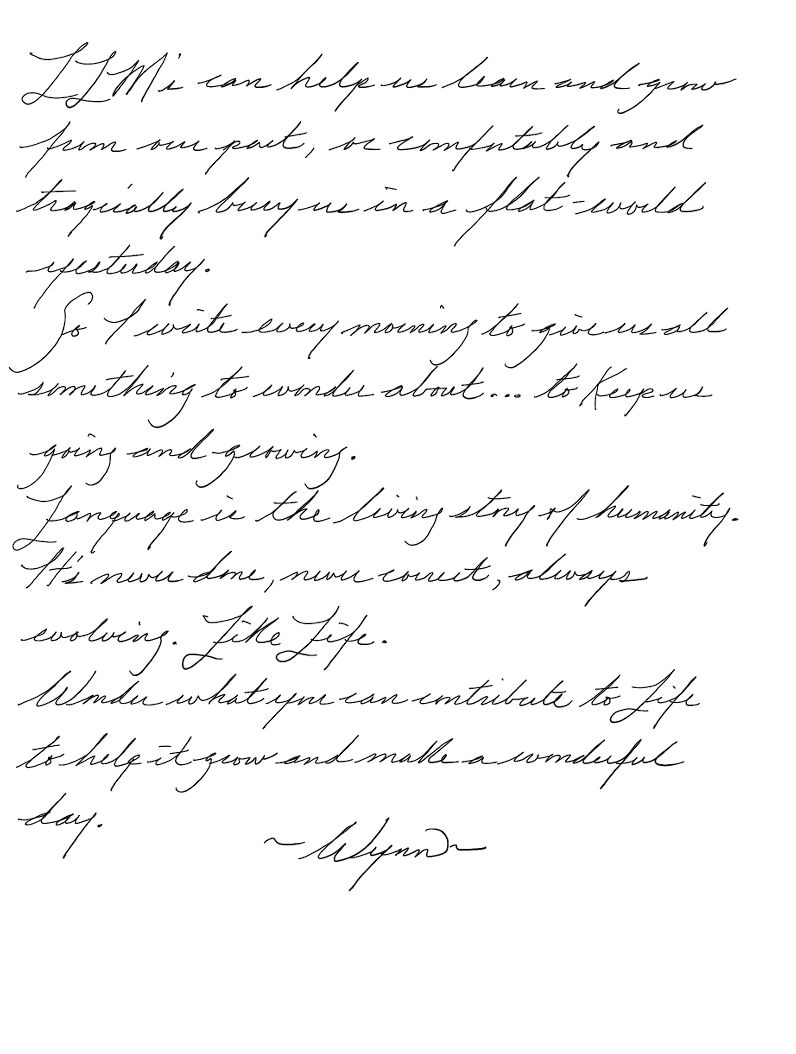 LLM's can help us learn and grow
from our past, or comfortably and
tragically bury us in a flat-world
yesterday.
So I write every morning to give us all
something to wonder about... to Keep us
going and growing.
Language is the living story of humanity.
It's never done, never correct, always
evolving. Like Life.
Wonder what you can contribute to Life
to help it grow and make a wonderful
day.
~Wynn~